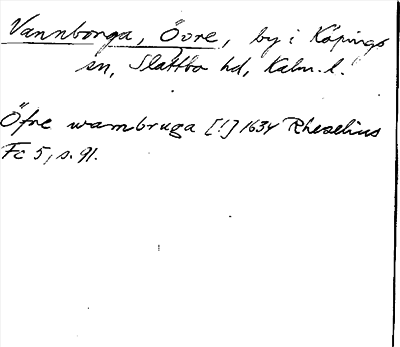 Vannborga, Övre, by i Köpings
sn, Slättbo hd, Kalm. l.
Öfre wambruga [!] 1634 Rhezelius
Fc 5, s. 91.